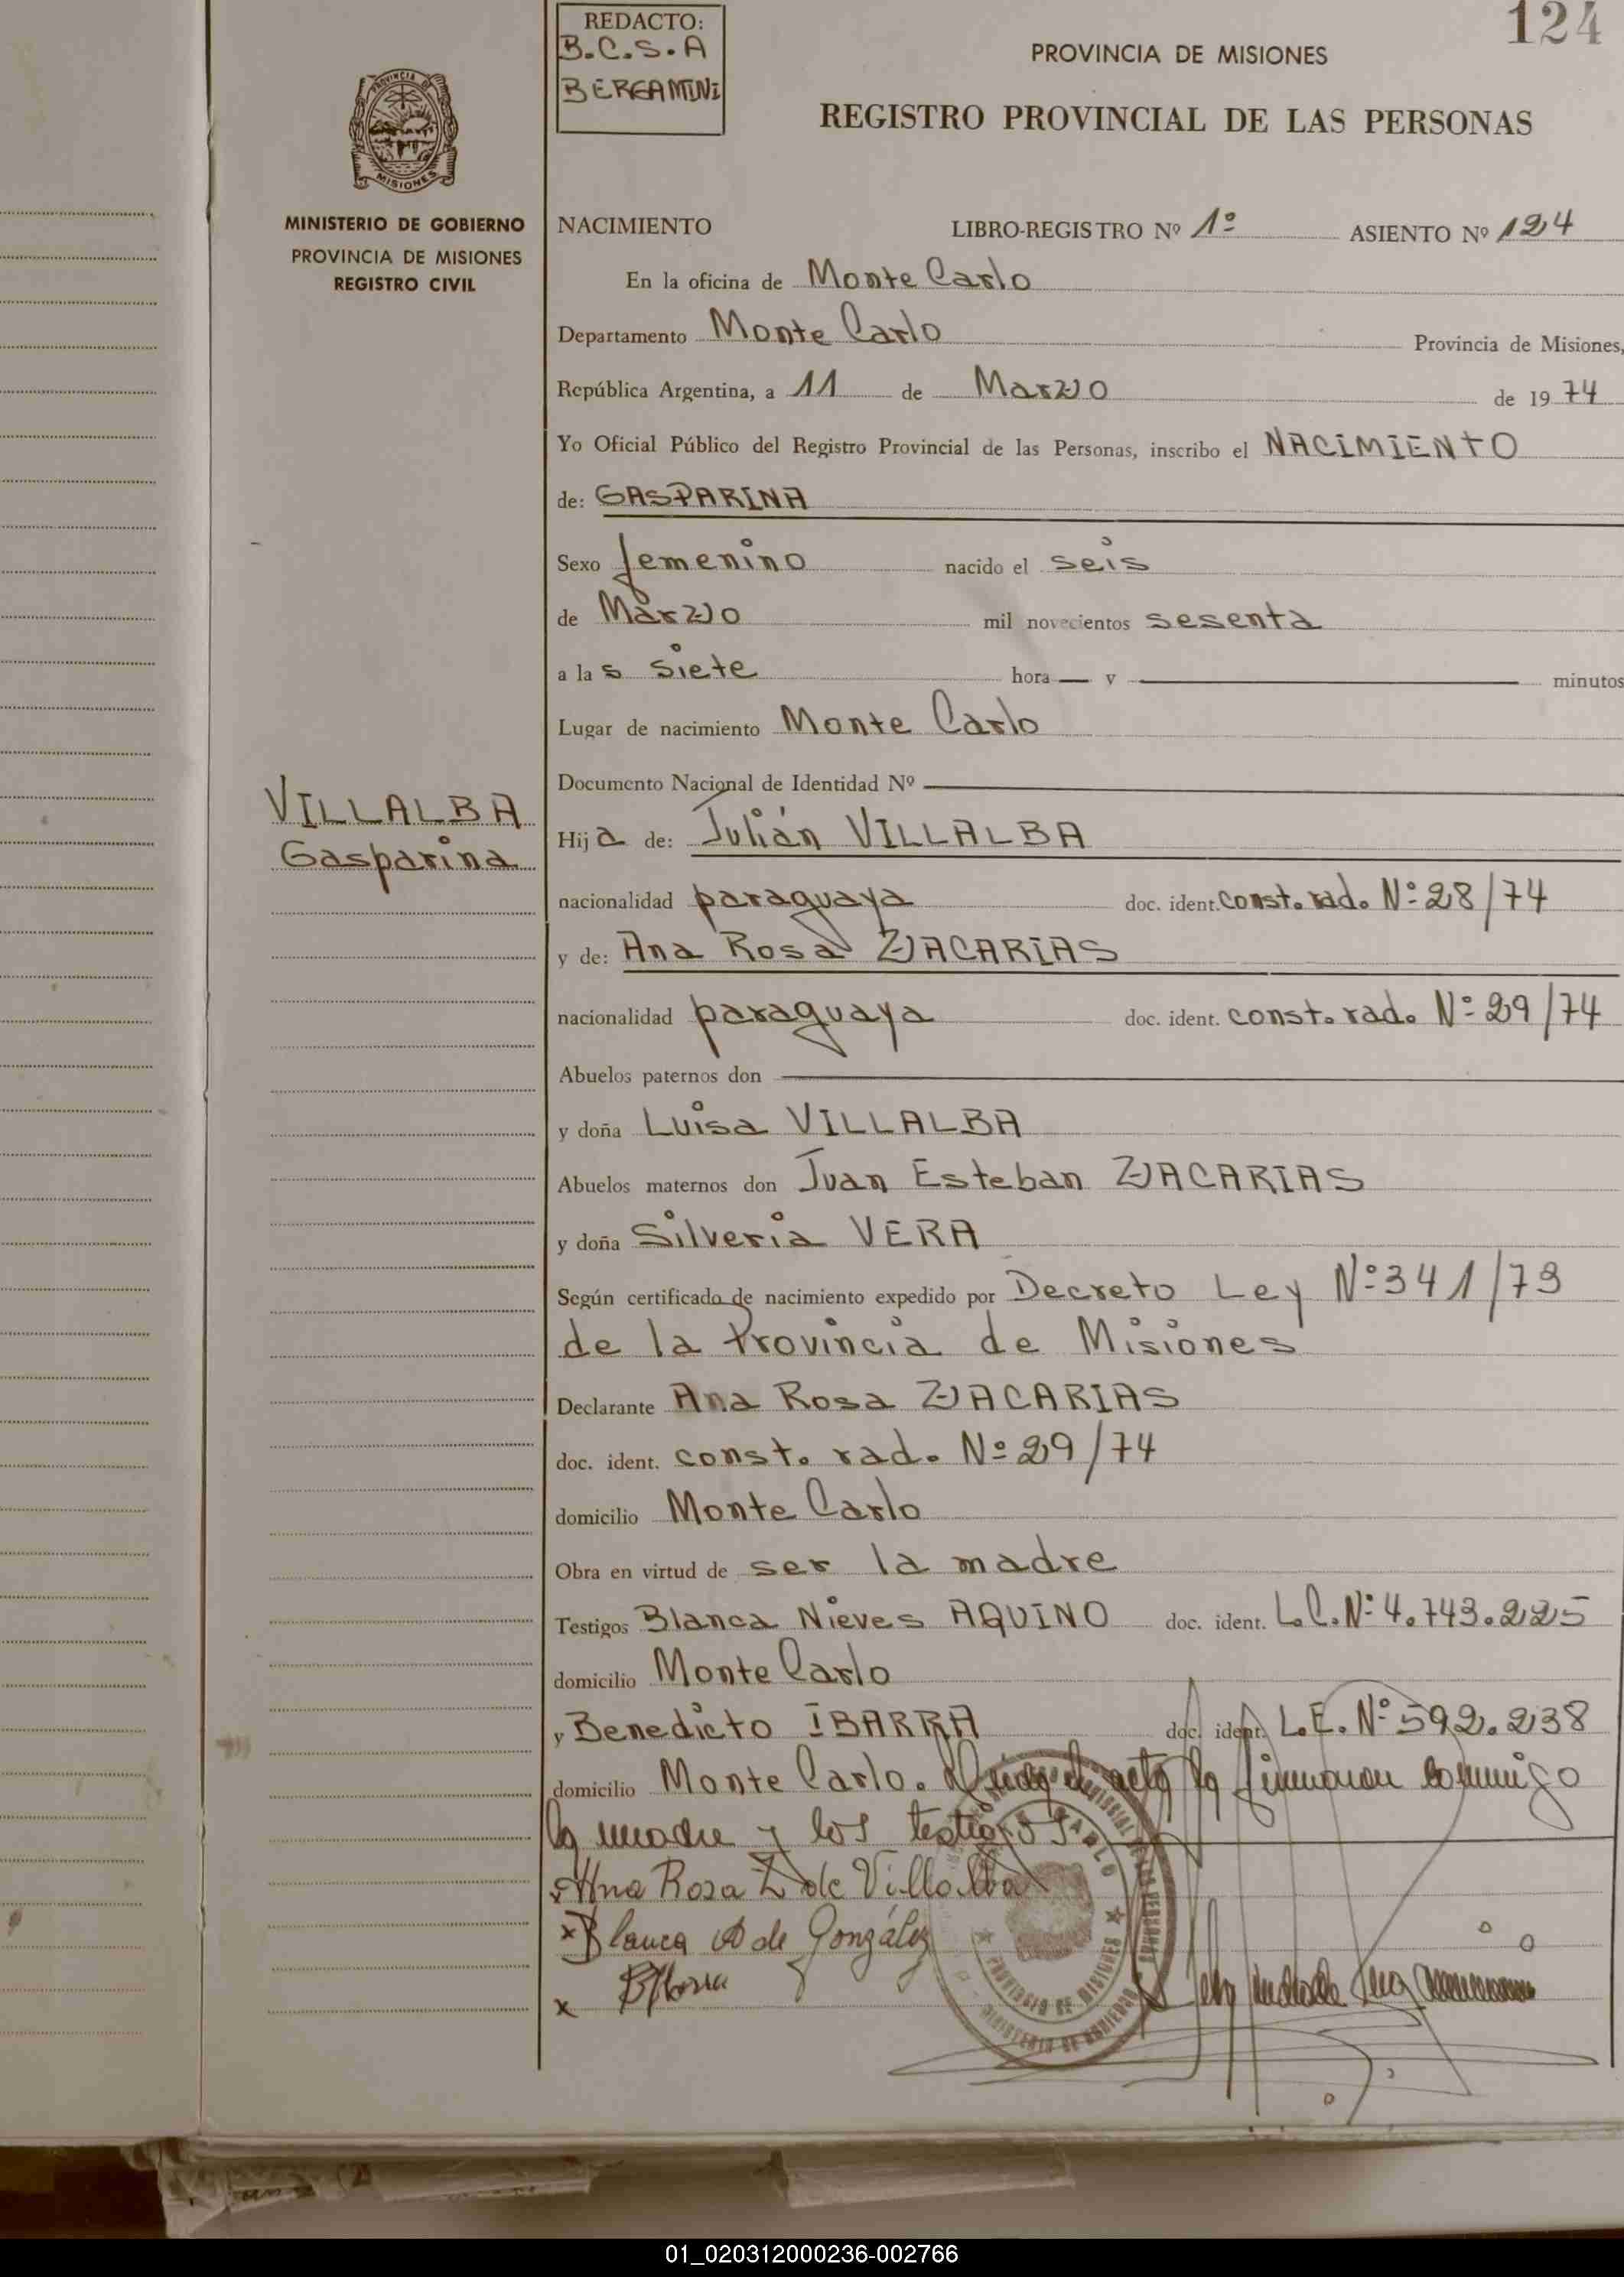 124
REDACTO:
B.C.S.A
BERGAMINI
PROVINCIA DE MISIONES
REGISTRO PROVINCIAL DE LAS PERSONAS
PROVINCIA DE
MISIONES
MINISTERIO DE GOBIERNO
PROVINCIA DE MISIONES
REGISTRO CIVIL
NACIMIENTO LIBRO-REGISTRO Nº 1º ASIENTO Nº 124
En la oficina de Monte Carlo
Departamento Monte Carlo Provincia de Misiones,
República Argentina, a 11 de Marzo de 1974
Yo Oficial Público del Registro Provincial de las Personas, inscribo el NACIMIENTO
de: GASPARINA
Sexo femenino nacido el seis
de Marzo mil novecientos sesenta
a las siete hora — y — minutos
Lugar de nacimiento Monte Carlo
Documento Nacional de Identidad Nº —
VILLALBA
Gasparina
Hija de: Julián VILLALBA
nacionalidad paraguaya doc. ident. const. rad. Nº 28/74
y de: Ana Rosa ZACARIAS
nacionalidad paraguaya doc. ident. const. rad. Nº 29/74
Abuelos paternos don —
y doña Luisa VILLALBA
Abuelos maternos don Juan Esteban ZACARIAS
y doña Silveria VERA
Según certificado de nacimiento expedido por Decreto Ley Nº 341/73
de la Provincia de Misiones
Declarante Ana Rosa ZACARIAS
doc. ident. const. rad. Nº 29/74
domicilio Monte Carlo
Obra en virtud de ser la madre
Testigos Blanca Nieves AQUINO doc. ident. L.C. Nº 4.743.225
domicilio Monte Carlo
y Benedicto IBARRA doc. ident. L.E. Nº 592.238
domicilio Monte Carlo. acta la firmaron conmigo
la madre y los testigos
Ana Rosa Z de Villalba
x Blanca A de González
x BIbarra
PROVINCIA DE MISIONES
MINISTERIO DE GOBIERNO
01_020312000236-002766